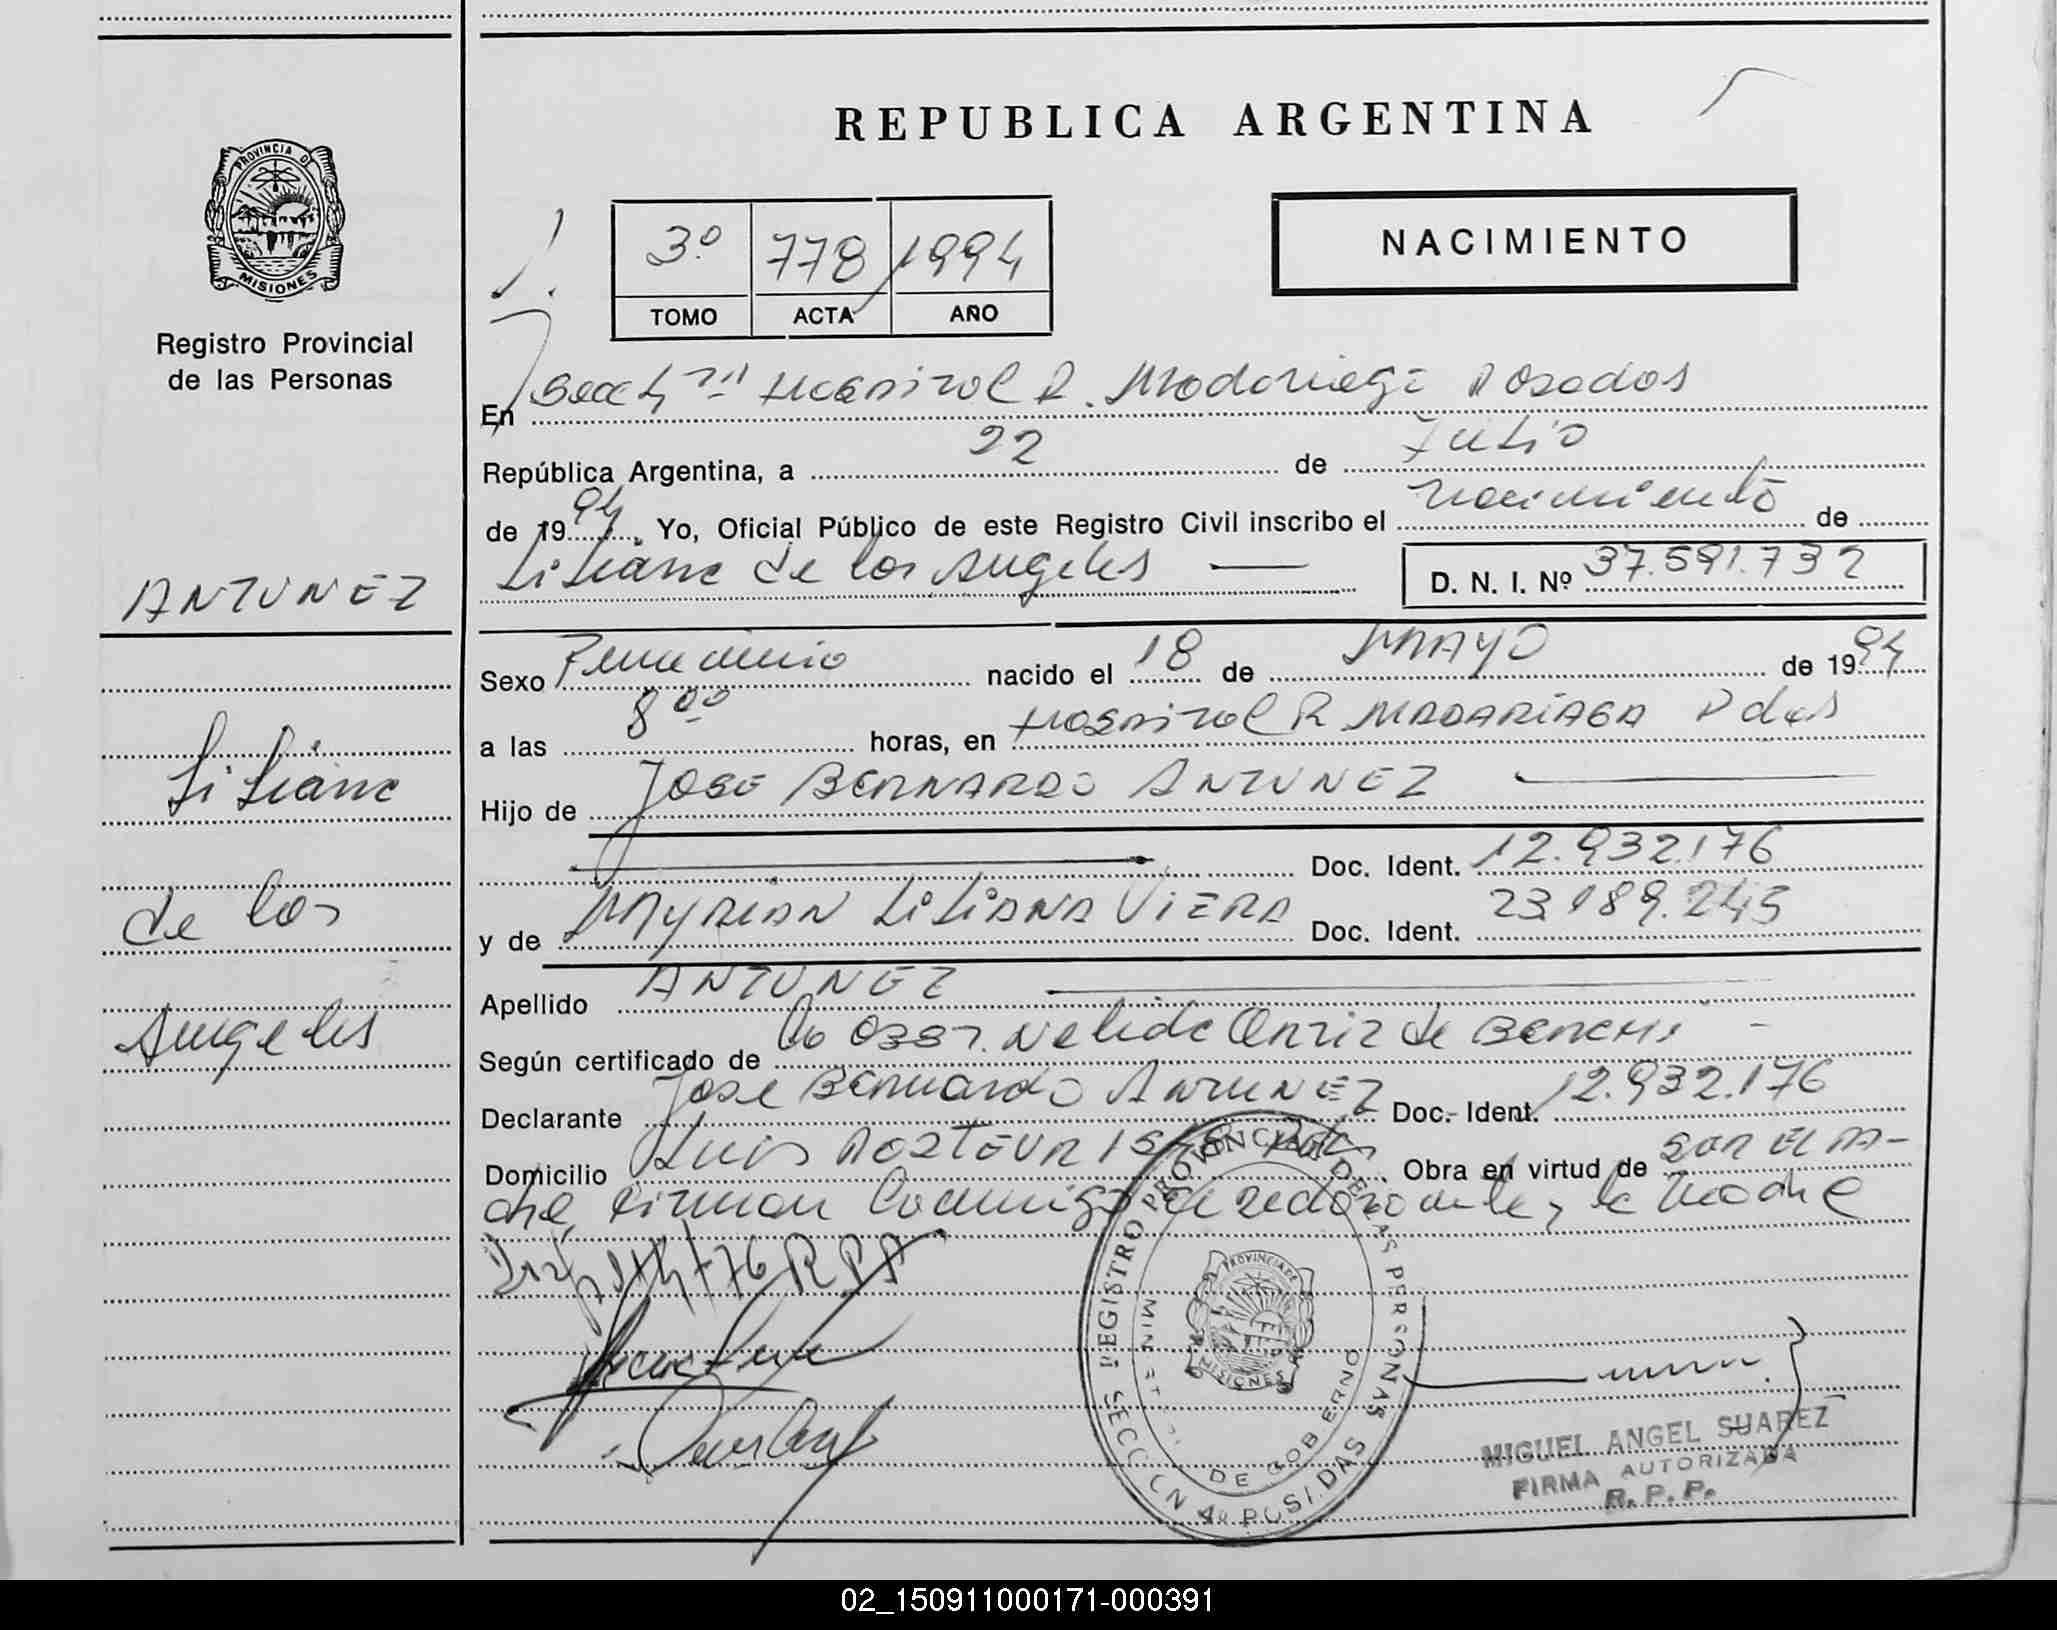 REPUBLICA ARGENTINA
PROVINCIA D
MISIONES
Registro Provincial
de las Personas
3º 778 1994
TOMO ACTA AÑO
NACIMIENTO
En Hospital R. Madariaga Posadas
República Argentina, a 22 de Julio
de 1994. Yo, Oficial Público de este Registro Civil inscribo el nacimiento de
Liliana de los Angeles
D. N. I. Nº 37.591.732
ANTUNEZ
Liliana
de los
Angeles
Sexo Femenino nacido el 18 de MAYO de 1994
a las 8 00 horas, en Hospital R MADARIAGA Pdas
Hijo de JOSE BERNARDO ANTUNEZ
Doc. Ident. 12.932.176
y de MYRIAN LILIANA VIERA Doc. Ident. 23.189.245
Apellido ANTUNEZ
Según certificado de la Obst. Nelida Ortiz de
Declarante Jose Bernardo ANTUNEZ Doc. Ident. 12.932.176
Domicilio Luis PASTEUR Obra en virtud de SER EL PA-
dre, firman conmigo el declarante y la madre
REGISTRO PROVINCIAL DE LAS PERSONAS
DE GOBIERNO
PROVINCIA DE
MISIONES
MIGUEL ANGEL SUAREZ
FIRMA AUTORIZADA
R. P. P.
02_150911000171-000391